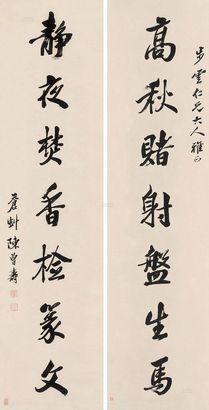 步雲仁兄大人雅正
高秋賭射盤生馬
靜夜焚香檢篆文
蒼虯陳曾壽